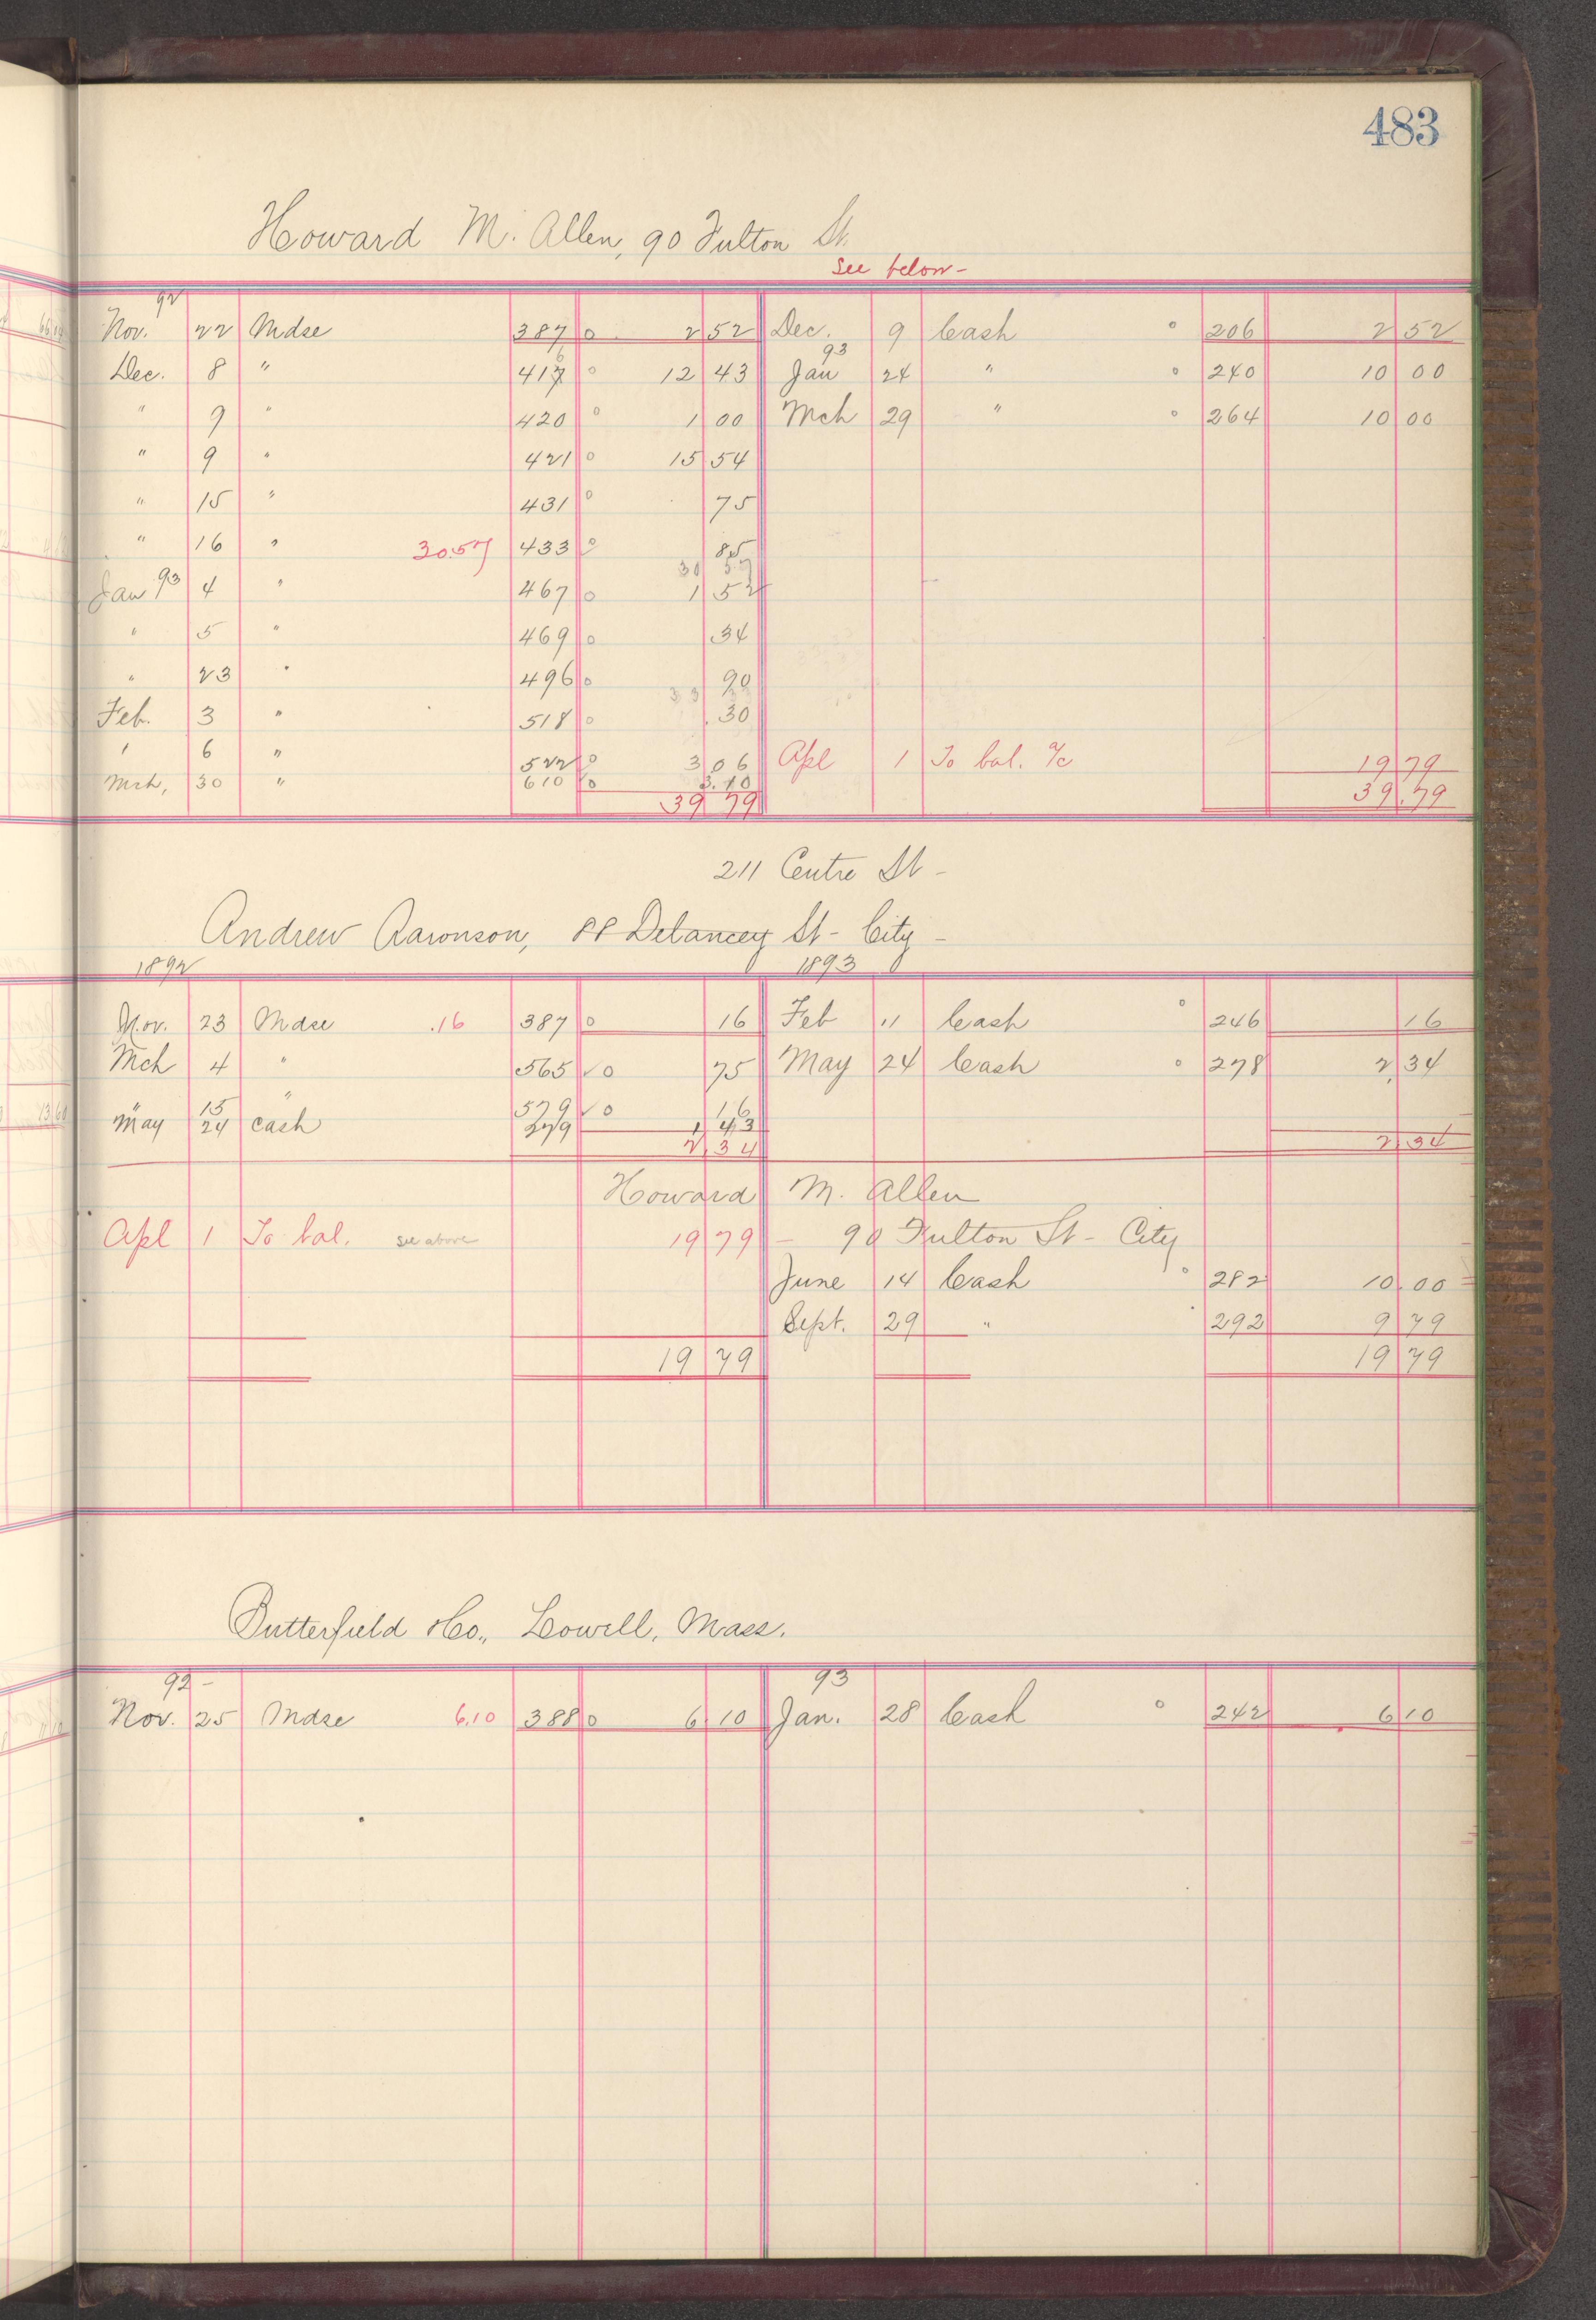 483
Howard M. Allen, 90 Fulton St.
See below -
92
Nov. 22 Mdse 387 0 2 52 Dec. 9 Cash 0 206 2 52
93
Dec. 8 " 417 0 12 43 Jan 24 " 0 240 10 00
" 9 " 420 0 1 00 Mch 29 " 0 264 10 00
" 9 " 421 0 15 54
" 15 " 431 0 75
" 16 " 30.57 433 0 85
30 57
Jan 93 4 " 467 0 1 52
" 5 " 469 0 34
" 23 " 496 0 90
Feb. 3 " 518 0 30
" 6 " 522 0 3 06 Apl 1 To bal. a/c 19 79
Mch, 30 " 610 0 3.10
39 79 39.79
211 Centre St -
Andrew Aaronson, 88 Delancey St - City -
1892 1893
Nov. 23 Mdse .16 387 0 16 Feb 11 Cash 0 246 16
Mch 4 " 565 ✓ 0 75 May 24 Cash 0 278 2,34
" 15 " 579 ✓ 0 16
May 24 cash 279 1 43
2,34 2,34
Howard M. Allen
Apl 1 To bal. see above 19 79 - 90 Fulton St - City
June 14 Cash 0 282 10.00
Sept. 29 " 292 9 79
19 79 19 79
Butterfield & Co., Lowell, Mass.
92 - 93
Nov. 25 Mdse 6.10 388 0 6 10 Jan. 28 Cash 0 242 6 10